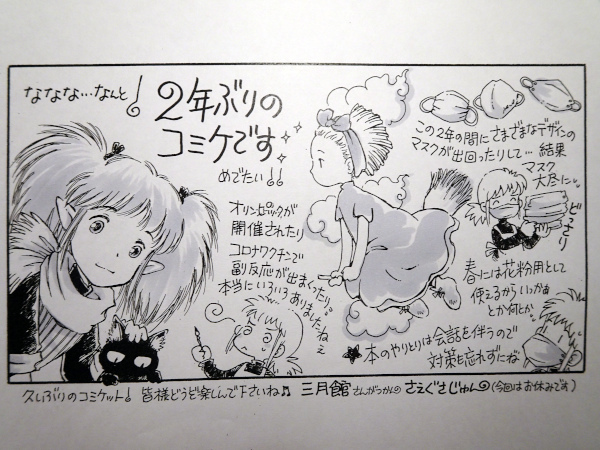 ななな…なんと!
2年ぶりの
コミケです
めでたい!!
オリンピックが
開催されたり
コロナワクチンで
副反応が出まくったり。
本当にいろいろありましたねぇ
この2年の間にさまざまなデザインの
マスクが出回ったりして… 結果
マスク
大尽に
どっさり
春には花粉用として
使えるからいっかぁ
とか何とか
★本のやりとりは会話を伴うので
対策も忘れずにね
久しぶりのコミケット! 皆様どうぞ楽しんで下さいね♫ 三月館 さんがつかんの さえぐさじゅん (今回はお休みです)